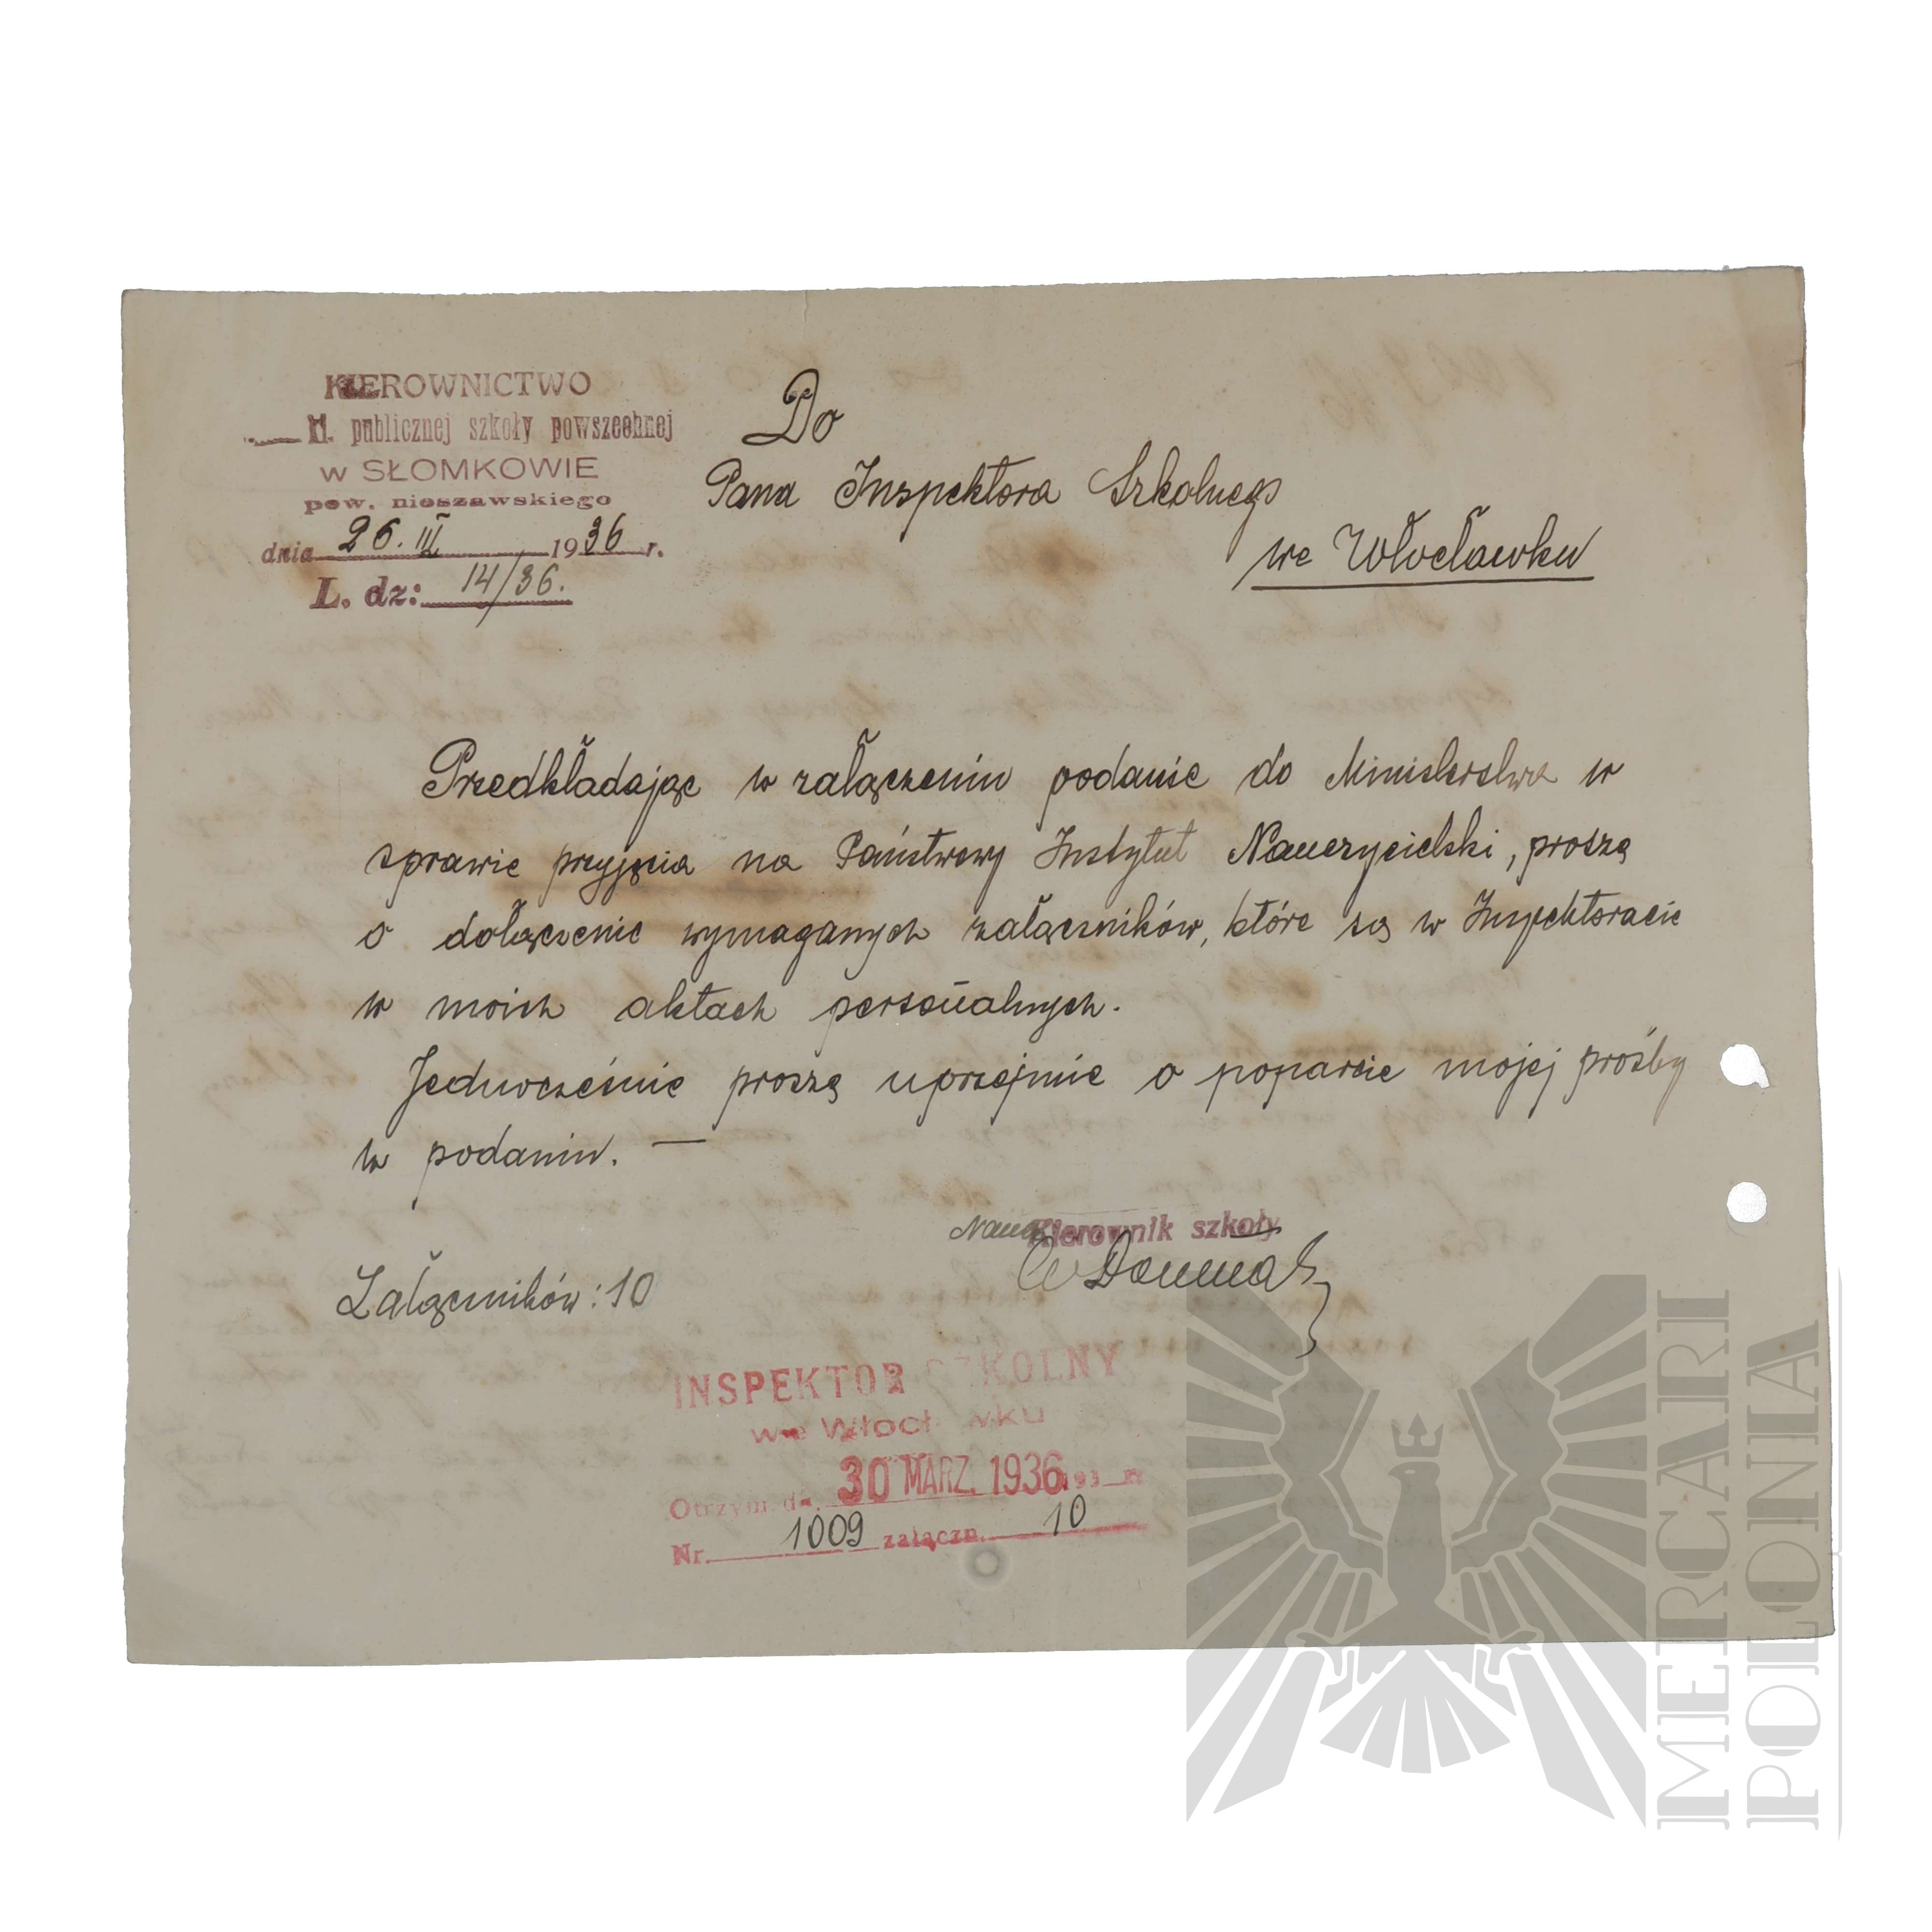 KIEROWNICTWO
kl. publicznej szkoły powszechnej
w SŁOMKOWIE
pow. nieszawskiego
dnia 26. III 1936 r.
L. dz: 14/36.
Do
Pana Inspektora Szkolnego
we Włocławku
Przedkładając w załączeniu podanie do Ministerstwa w
sprawie przyjęcia na Państwowy Instytut Nauczycielski, proszę
o dołączenie wymaganych załączników, które są w Inspektoracie
w moich aktach personalnych.
Jednocześnie proszę uprzejmie o poparcie mojej prośby
w podaniu. —
Kierownik szkoły
Załączników: 10
INSPEKTOR SZKOLNY
we Włocławku
Otrzym. dn. 30 MARZ. 1936 193 r.
Nr. 1009 załączn. 10
MERCARI
POLONIA